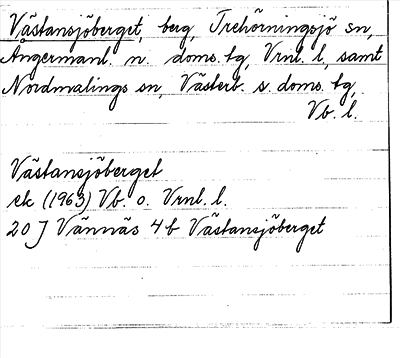 Västansjöberget, berg, Trehörningsjö sn,
Ångermanl. n. doms. tg, Vrnl. l, samt
Nordmalings sn, Västerb. s. doms. tg,
Vb. l.
Västansjöberget
ek (1963) Vb. o. Vrnl. l.
20 J Vännäs 4 b Västansjöberget